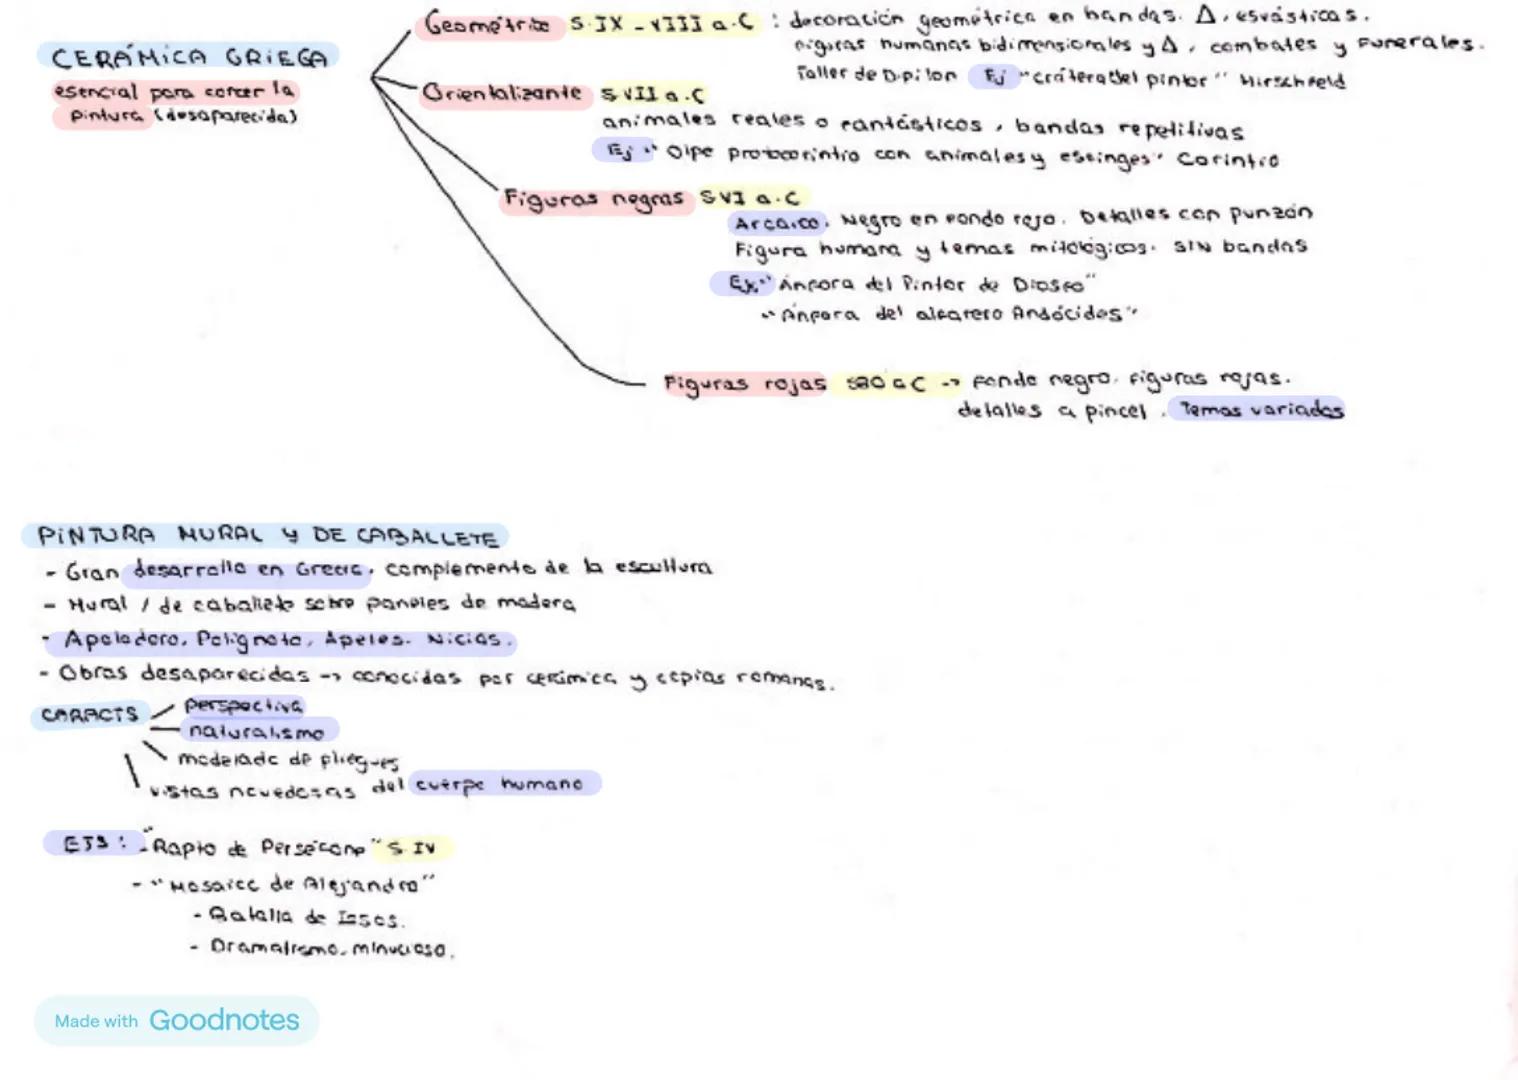 CERÁMICA GRIEGA
esencial para concer la
pintura (desaparecida)
Geométrico S.IX - VIII a.C : decoración geométrica en bandas. Δ, esvásticas.
figuras humanas bidimensionales y Δ, combates y funerales.
Taller de Dipilon Ej "crátera del pintor" Hirschfeld
Orientalizante S VII a.C
animales reales o fantásticos, bandas repetitivas
Ej "Olpe protocorintio con animales y esfinges" Corintio
Figuras negras S VI a.C
Arcaico. Negro en fondo rojo. Detalles con punzón
Figura humana y temas mitológicos. SIN bandas
Ex. "Ánfora del Pintor de Diosfo"
"Ánfora del alfarero Andócides"
Figuras rojas 530 a C -> fondo negro. figuras rojas.
detalles a pincel. Temas variados
PINTURA MURAL Y DE CABALLETE
- Gran desarrollo en Grecia. complemento de la escultura
- Mural / de caballete sobre paneles de madera
- Apolodoro, Polignoto, Apeles. Nicias.
- Obras desaparecidas -> conocidas por cerámica y copias romanas.
CARACTS
perspectiva
naturalismo
modelado de pliegues
vistas novedosas del cuerpo humano
EJS: - "Rapto de Persécone" S. IV
- "Mosaico de Alejandro"
- Batalla de Issos.
- Dramatismo. minucioso.
Made with Goodnotes